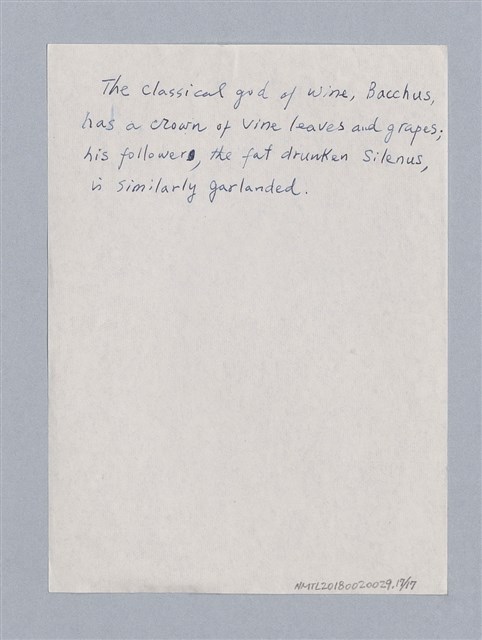 The classical god of wine, Bacchus,
has a crown of vine leaves and grapes;
his follower, the fat drunken Silenus,
is similarly garlanded.
NMTL20180020029.17/17